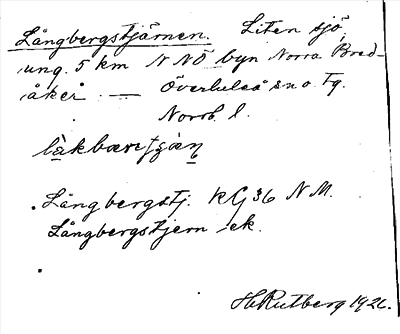 Långbergstjärnen. Liten sjö,
ung. 5 km NNÖ byn Norra Bred-
åker. — Överluleå sn o. tg.
Norrb. l.
Långbergstj. KG 36 N.M.
Långbergstjern ek.
H Rutberg 192